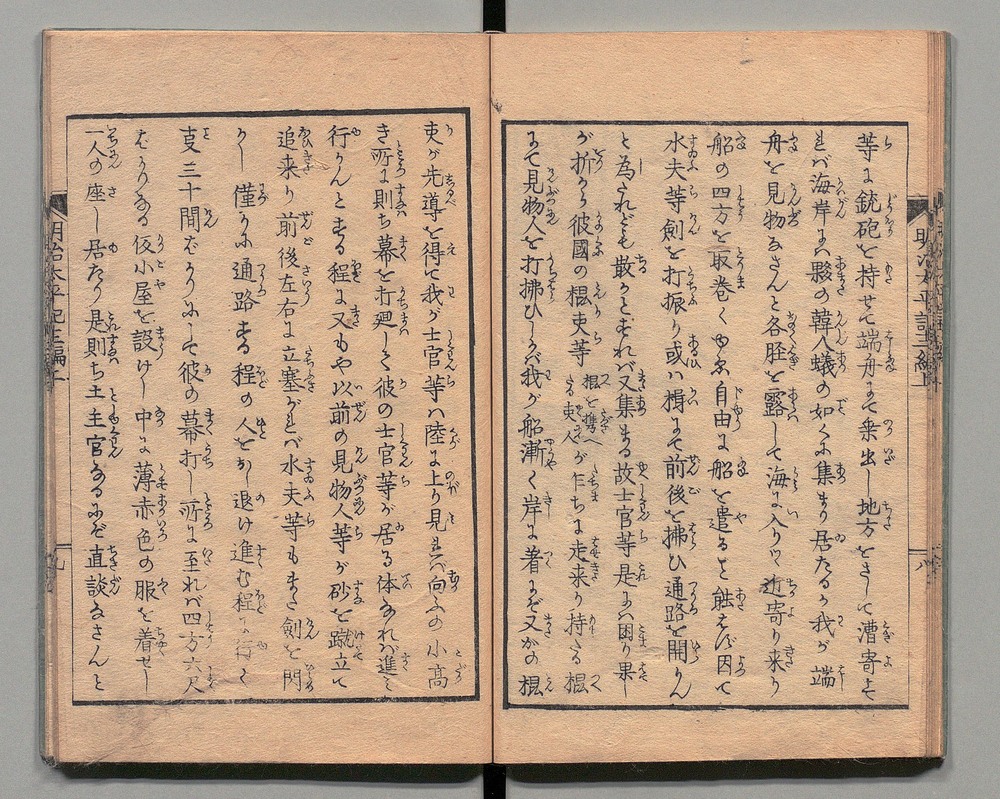 等に銃砲を持せて端舟にて乗出し地方をさして漕寄せ
れバ海岸にハ夥の韓人蟻の如くに集まり居たるが我が端
舟を見物なさんと各脛を露して海に入りて近寄り来り
船の四方を取巻く由ゑ自由に船を遣ること能はず因て
水夫等剣を打振り或ハ揖にて前後を拂ひ通路を開かん
と為たれども散かとすれバ又集まる故士官等是にハ困り果し
が折から彼國の棍吏等 棍を携へたる吏人 が乍ちに走来り持たる棍
にて見物人を打拂ひしかバ我が船漸く岸に著にぞ又かの棍
吏が先導を得て我が士官等ハ陸に上り見れバ向ふの小高
き所に則ち幕を打廻して彼の士官等が居る体なれバ進み
行かんとする程に又もや以前の見物人等が砂を蹴立て
追来り前後左右に立塞がれバ水夫等もまた剣を閃
かし僅かに通路する程の人をおし退け進む程に行く
こと三十間ばかりにして彼の幕打し所に至れバ四方六尺
ばかりなる仮小屋を設けし中に薄赤色の服を着せし
一人の座し居たり是則ち土主官なるにぞ直談なさんと
明治太平記三編上
八
明治太平記三編上
九